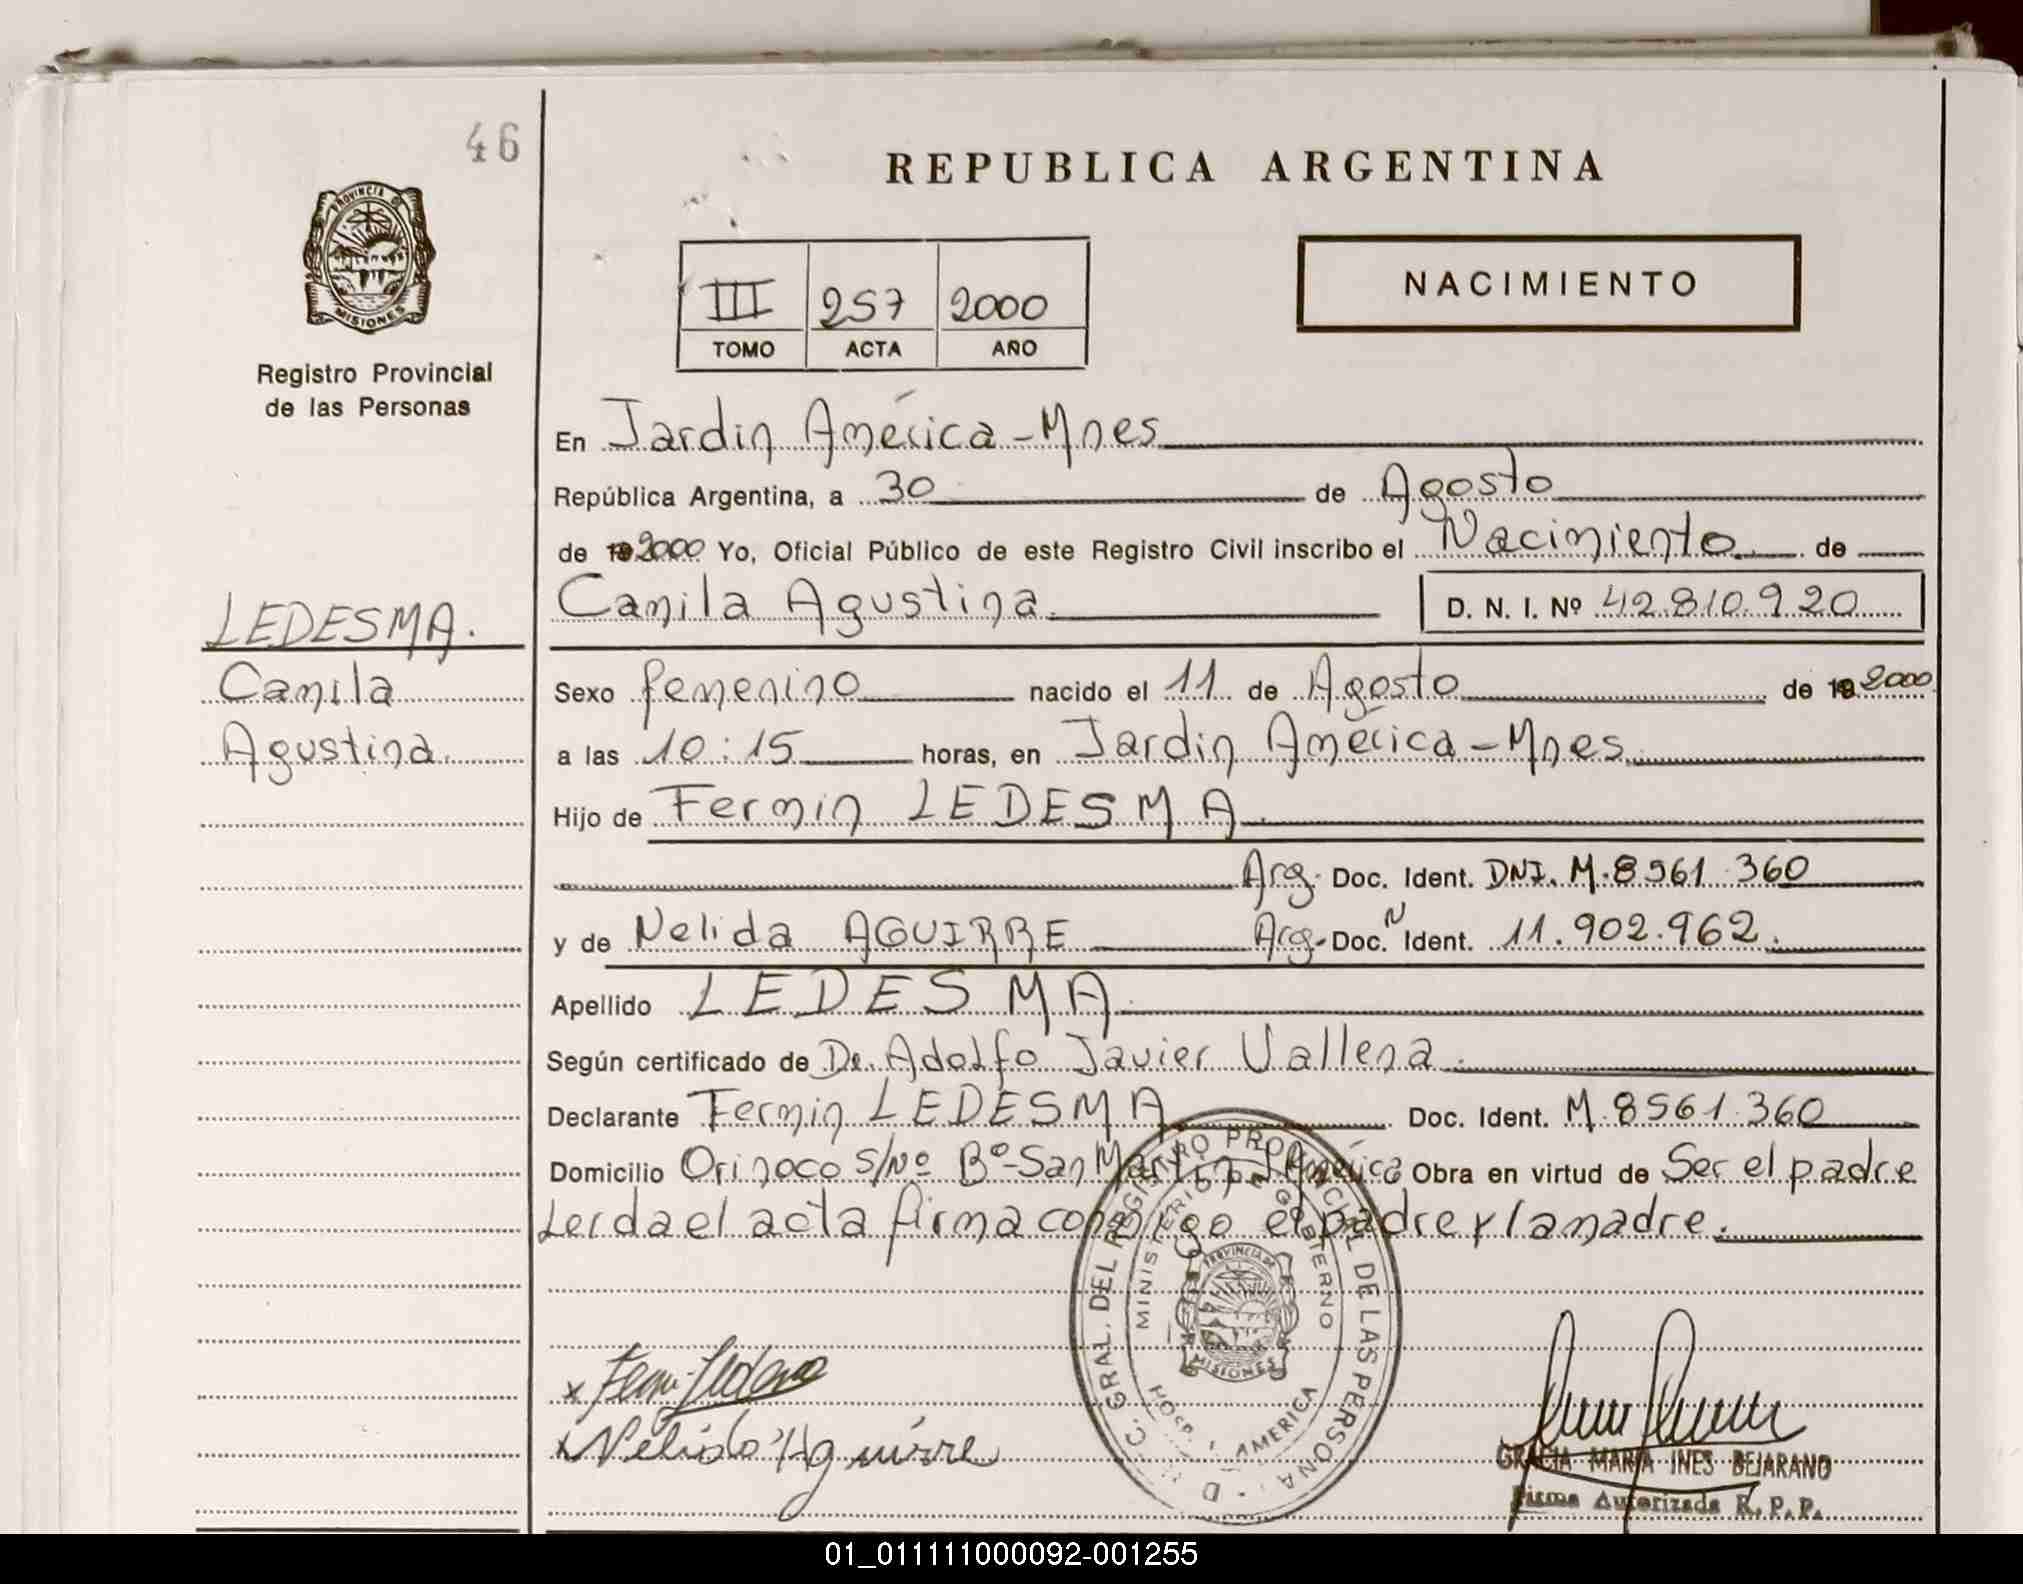 46
REPUBLICA ARGENTINA
PROVINCIA DE
MISIONES
III 257 2000
TOMO ACTA AÑO
NACIMIENTO
Registro Provincial
de las Personas
En Jardin América - Mnes
República Argentina, a 30 de Agosto
de 19 2000 Yo, Oficial Público de este Registro Civil inscribo el Nacimiento de
Camila Agustina. D. N. I. Nº 42.810.920
LEDESMA.
Camila
Agustina.
Sexo femenino nacido el 11 de Agosto de 19 2000
a las 10:15 horas, en Jardin América - Mnes
Hijo de Fermin LEDESMA.
Arg. Doc. Ident. DNI. M. 8561.360
y de Nelida AGUIRRE Arg. Doc. N Ident. 11.902.962.
Apellido LEDESMA.
Según certificado de Dr. Adolfo Javier Vallena.
Declarante Fermin LEDESMA Doc. Ident. M. 8561.360
Domicilio Orinoco S/Nº Bº-San Martin J. América Obra en virtud de Ser el padre
Leida el acta firma conmigo el padre y la madre.
GRAL. DEL REGISTRO PROVINCIAL DE LAS PERSONAS
MINISTERIO DE GOBIERNO
PROVINCIA DE
MISIONES
AMERICA
x Fermin Ledesma
x Nelida Aguirre
GRACIA MARIA INES BEJARANO
Firma Autorizada R. P. P.
01_011111000092-001255